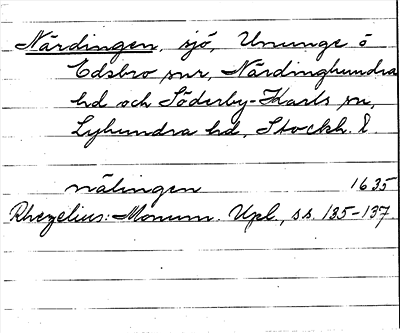 Närdingen, sjö, Ununge o
Edsbro snr, Närdinghundra
hd och Söderby-Karls sn,
Lyhundra hd, Stockh. l.
målingen 1635
Rhezelius: Monum. Upl., ss. 135-137.